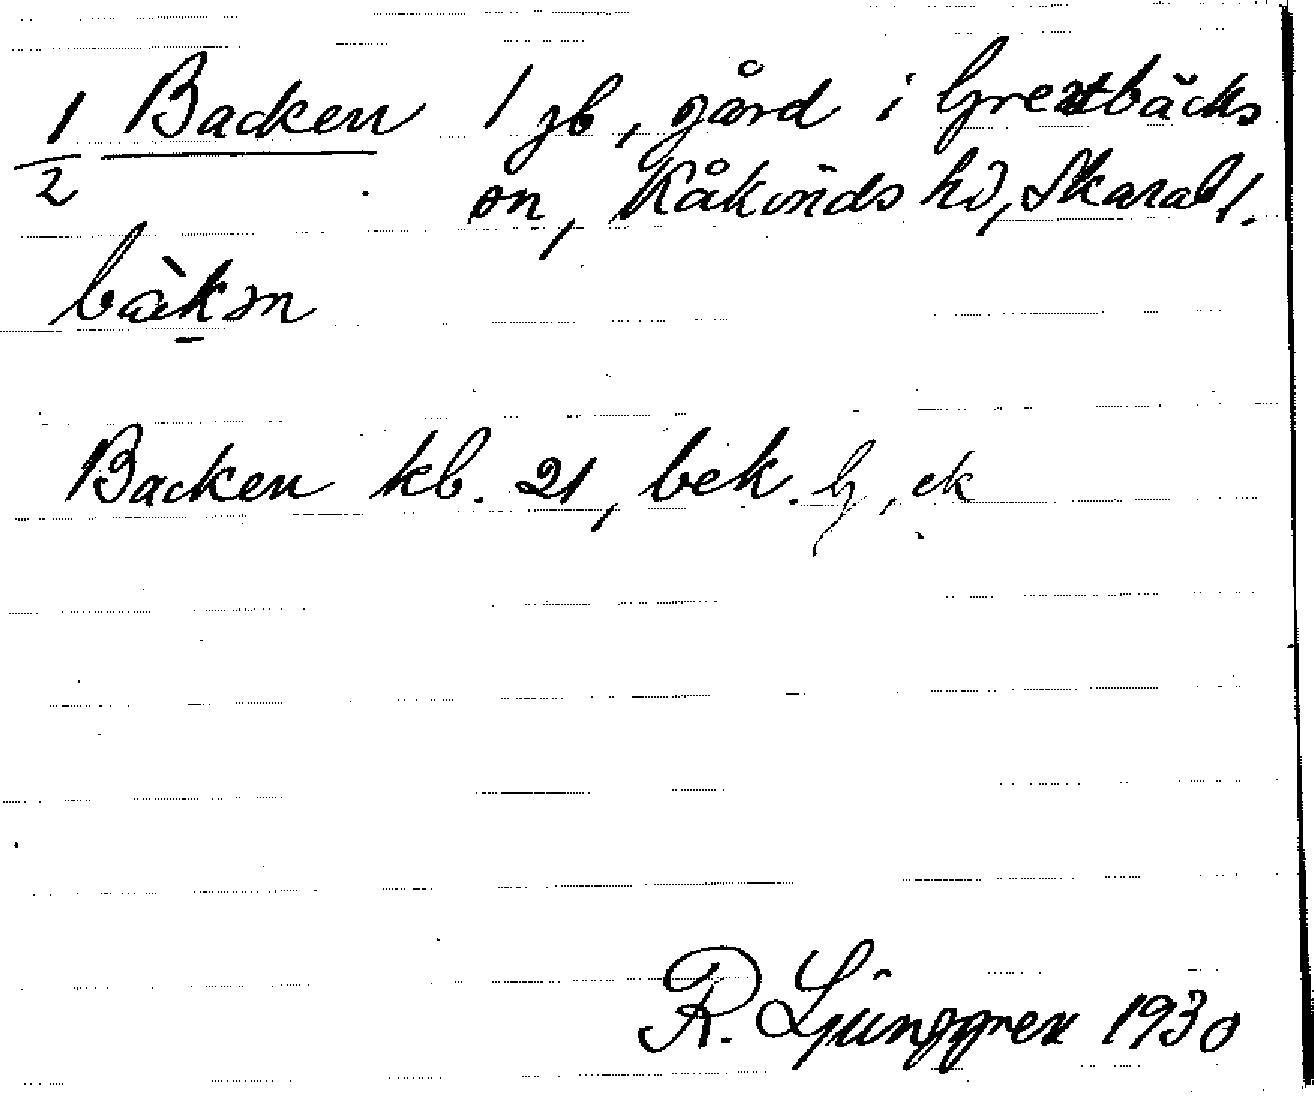 1/2 Backen 1 jb, gård i Grevbäcks
sn, Kåkinds hd, Skarab l.
bàkən
Backen kb. 21, bek. G, ek
R. Ljunggren 1930